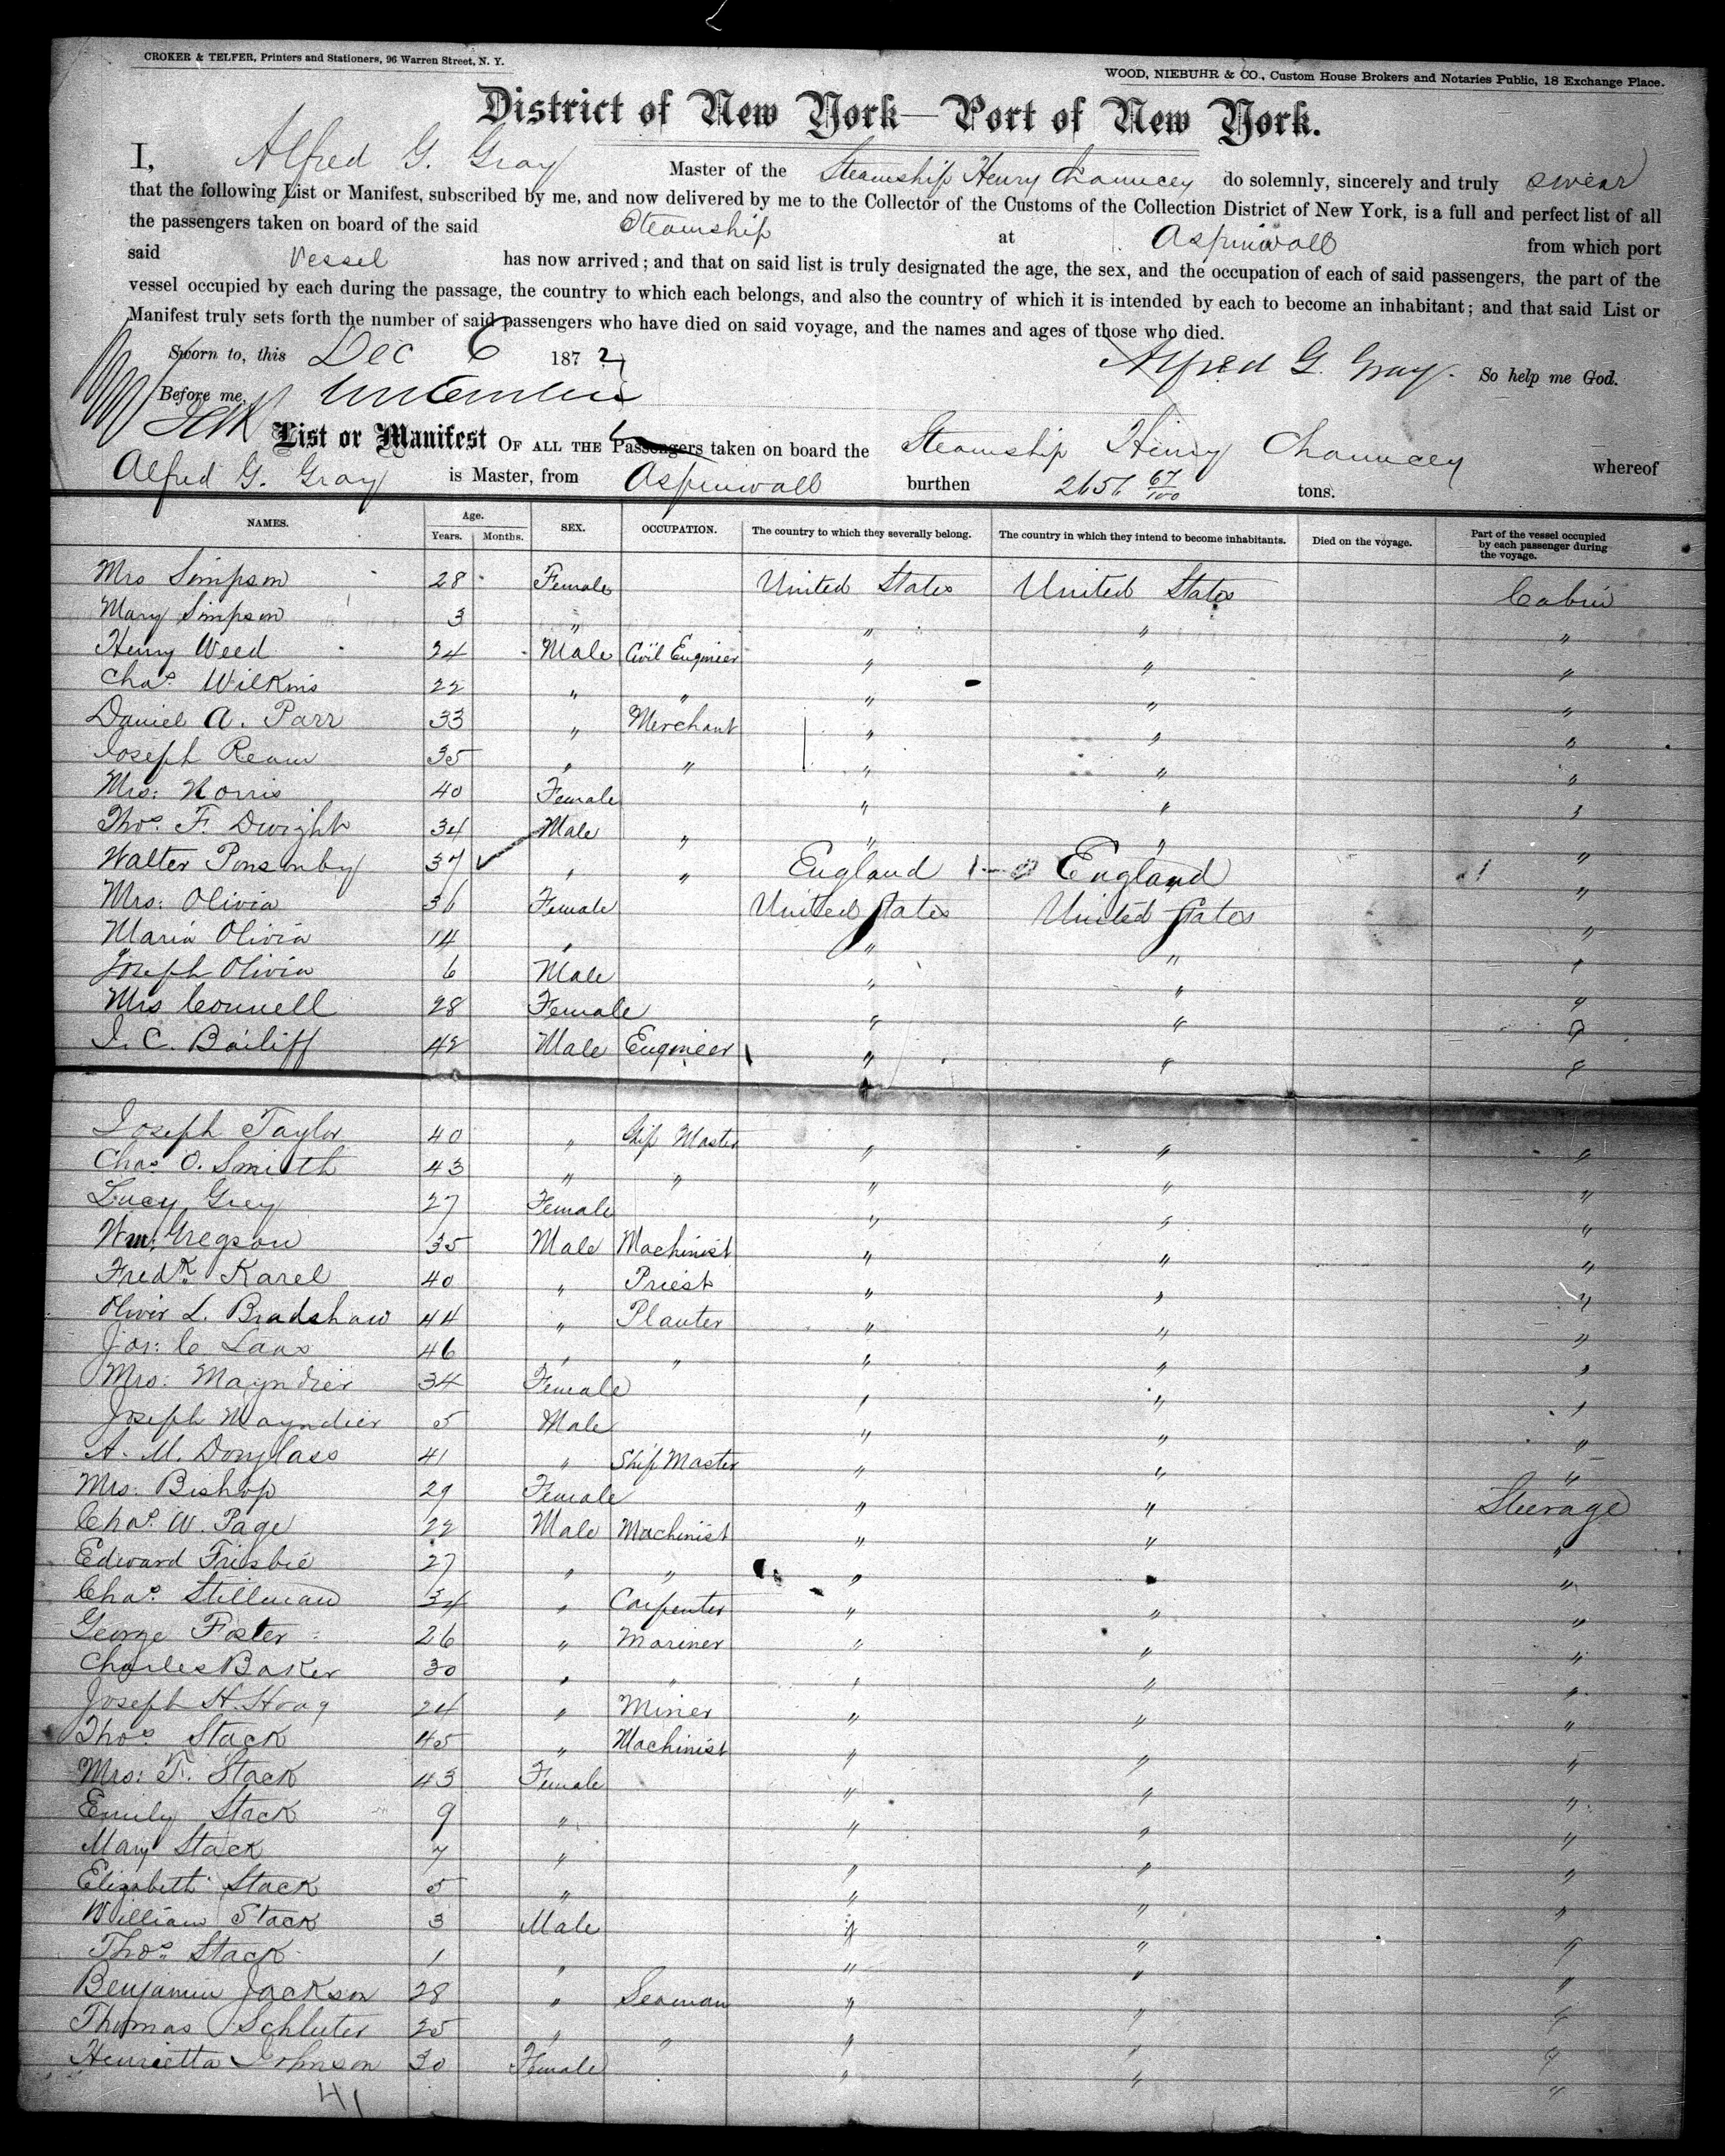 CROKER & TELFER, Printers and Stationers, 96 Warren Street, N. Y.
WOOD, NIEBUHR & CO., Custom House Brokers and Notaries Public, 18 Exchange Place.
District of New York—Port of New York.
I, Alfred G. Gray Master of the Steamship Henry Chauncey do solemnly, sincerely and truly swear
that the following List or Manifest, subscribed by me, and now delivered by me to the Collector of the Customs of the Collection District of New York, is a full and perfect list of all
the passengers taken on board of the said Steamship at Aspinwall from which port
said Vessel has now arrived; and that on said list is truly designated the age, the sex, and the occupation of each of said passengers, the part of the
vessel occupied by each during the passage, the country to which each belongs, and also the country of which it is intended by each to become an inhabitant; and that said List or
Manifest truly sets forth the number of said passengers who have died on said voyage, and the names and ages of those who died.
Sworn to, this Dec 6 1872 Alfred G. Gray. So help me God.
Before me,
List or Manifest OF ALL THE Passengers taken on board the Steamship Henry Chauncey whereof
Alfred G. Gray is Master, from Aspinwall burthen 2656 67/100 tons.
NAMES. Age. Years. Months. SEX. OCCUPATION. The country to which they severally belong. The country in which they intend to become inhabitants. Died on the voyage. Part of the vessel occupied by each passenger during the voyage.
Mrs Simpson 28 Female United States United States Cabin
Mary Simpson 3 " " " "
Henry Weed 24 Male Civil Engineer " " "
Chas. Wilkins 22 " " " " "
Daniel A. Parr 33 " Merchant " " "
Joseph Ream 35 " " " " "
Mrs: Norris 40 Female " " "
Thos. F. Dwight 34 Male " " " "
Walter Ponsonby 37 " " England England "
Mrs: Olivia 36 Female United States United States "
Maria Olivia 14 " " " "
Joseph Olivia 6 Male " " "
Mrs Connell 28 Female " " "
J. C. Bailiff 42 Male Engineer " " "
Joseph Taylor 40 " Ship Master " " "
Chas O. Smith 43 " " " " "
Lucy Grey 27 Female " " "
Wm: Gregson 35 Male Machinist " " "
Fredk. Karel 40 " Priest " " "
Oliver L. Bradshaw 44 " Planter " " "
Jos: C Laas 46 " " " " "
Mrs: Mayndier 34 Female " " "
Joseph Mayndier 5 Male " " "
A. M. Douglass 41 " Ship Master " " "
Mrs: Bishop 29 Female " " Steerage
Chas. W. Page 22 Male Machinist " " "
Edward Frisbie 27 " " " " "
Chas. Stillman 34 " Carpenter " " "
George Foster 26 " Mariner " " "
Charles Baker 30 " " " " "
Joseph H. Hoag 24 " Miner " " "
Thos Stack 45 " Machinist " " "
Mrs: T. Stack 43 Female " " "
Emily Stack 9 " " " "
Mary Stack 7 " " " "
Elizabeth Stack 5 " " " "
William Stack 3 Male " " "
Thos Stack 1 " " " "
Benjamin Jackson 28 " Seaman " " "
Thomas Schluter 25 " " " " "
Henrietta Johnson 30 Female " " "
41